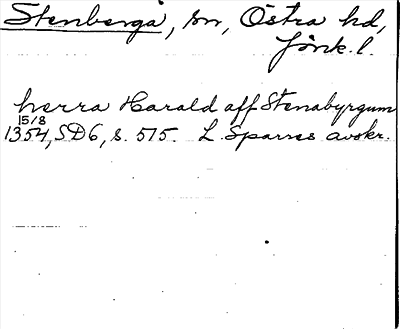 Stenberga, sn, Östra hd,
Jönk. l.
herra Harald aff Stenabyrgum
15/8
1354, SD6, s. 575. L. Sparres avskr.